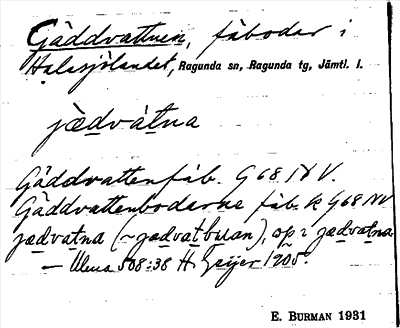 Gäddvattnen, fäbodar i
Halasjölandet, Ragunda sn, Ragunda tg, Jämtl. l.
jædvàtna
Gäddvattenfäb. G68 NV.
Gäddvattenbodarne fäb. k G68 NV
jædvatna (~ jædvatbuan), op i jædvatna
— 508:38 H. Geijer 1905.
E. BURMAN 1931